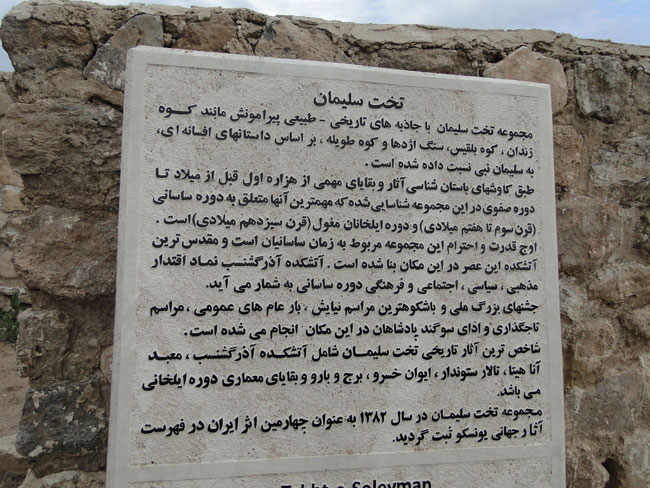 تخت سلیمان
مجموعه تخت سلیمان با جاذبه های تاریخی - طبیعی پیرامونش مانند کوه
زندان ، کوه بلقیس، سنگ اژدها و کوه طویله ، بر اساس داستانهای افسانه ای،
به سلیمان نبی نسبت داده شده است .
طبق کاوشهای باستان شناسی آثار و بقایای مهمی از هزاره اول قبل از میلاد تا
دوره صفوی در این مجموعه شناسایی شده که مهمترین آنها متعلق به دوره ساسانی
(قرن سوم تا هفتم میلادی) و دوره ایلخانان مغول (قرن سیزدهم میلادی) است .
اوج قدرت و احترام این مجموعه مربوط به زمان ساسانیان است و مقدس ترین
آتشکده این عصر در این مکان بنا شده است . آتشکده آذرگشنسب نماد اقتدار
مذهبی ، سیاسی ، اجتماعی و فرهنگی دوره ساسانی به شمار می آید.
جشنهای بزرگ ملی و باشکوهترین مراسم نیایش ، بار عام های عمومی ، مراسم
تاجگذاری و ادای سوگند پادشاهان در این مکان انجام می شده است .
شاخص ترین آثار تاریخی تخت سلیمان شامل آتشکده آذرگشنسب ، معبد
آنا هیتا ، تالار ستوندار ، ایوان خسرو ، برج و بارو و بقایای معماری دوره ایلخانی
می باشد.
مجموعه تخت سلیمان در سال ۱۳۸۲ به عنوان چهارمین اثر ایران در فهرست
آثار جهانی یونسکو ثبت گردید.
Takht-e Soleyman